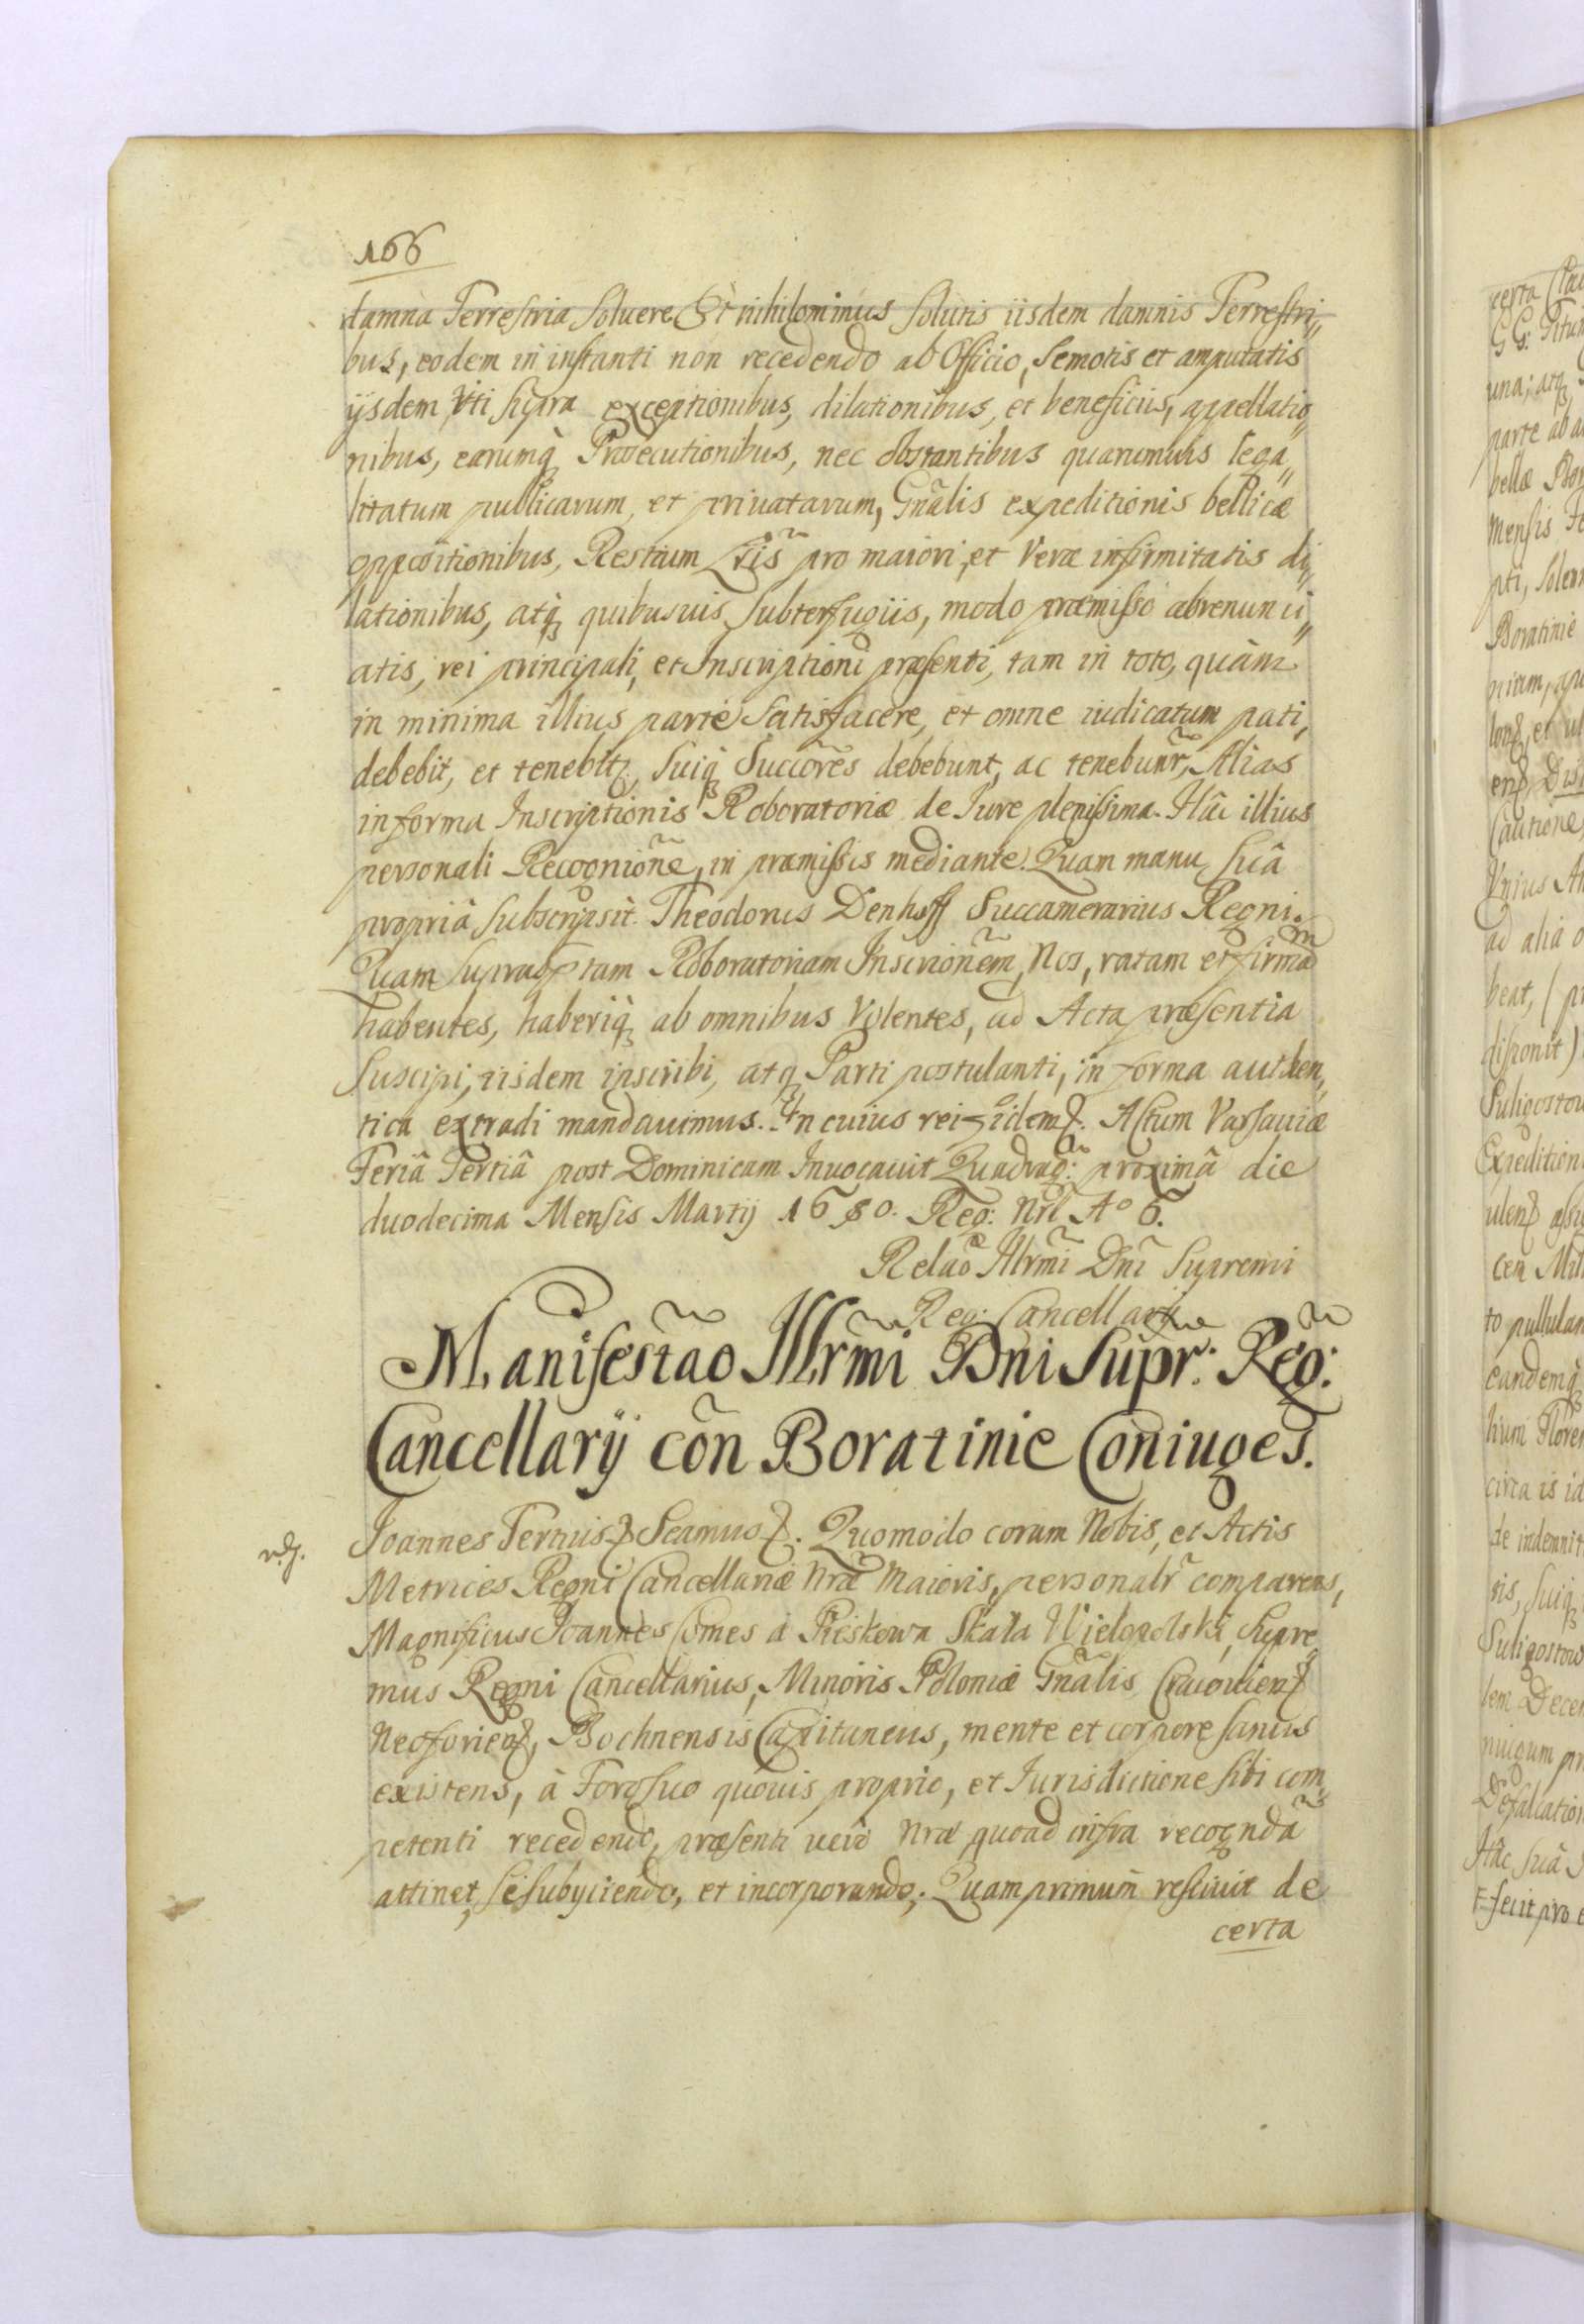 166
damna Terrestria soluere Et nihilominus solutis iisdem damnis Terrestri„
bus, eodem in instanti non recedendo ab Officio, semotis et amputatis
ijsdem vti supra exceptionibus, dilationibus, et beneficiis, appellatio„
nibus, earumq̀ Prosecutionibus, nec obstantibus quarumuis lega„
litatum publicarum, et priuatarum, Gnãlis expeditionis bellicæ
oppositionibus, Restium Lris̃ pro maiori, et Veræ infirmitatis di„
lationibus, atq̀ quibusuis subterfugiis, modo præmisso abrenunci„
atis, rei principali, et Inscriptioni præsenti, tam in toto, quàm
in minima illius parte satisfacere, et omne iudicatum pati,
debebit, et tenebitr, suiq̀ Succorẽs debebunt, ac tenebunr̃, Alias
in forma Inscriptionis Roboratoriæ de Iure plenissima. Hâc illius
personali Recognionẽ, in præmissis mediante. Quam manu suâ
propriâ subscripsit. Theodorus Denhoff Succamerarius Regni.
Quam suprascptam Roboratoriam Inscrionẽm, Nos, ratam et firmã
habentes, haberiq̀ ab omnibus Volentes, ad Acta præsentia
suscipi, iisdem inscribi, atq̀ Parti postulanti, in forma authen„
tica extradi mandauimus. In cuius rei fidem ꝛ. Actum Varsauiæ
Feriâ Tertiâ post Dominicam Inuocauit Quadrag: proximâ die
duodecima Mensis Martij 1680. Reg: Nri Aº 6.
Relao Illrmi Dni Supremi
Reg: Cancellarij
Manifestao Illrmi Dni Supr: Reg:
Cancellarij cõn Boratinie Coniuges.
Joannes Tertius ꝛ Seamus ꝛ. Quomodo coram Nobis, et Actis
Metrices Regni Cancellariæ Nræ Maioris, personalr̃ comparens,
Magnificus Joannes Comes à Pieskowa Skała Wielopolski, Supre„
mus Regni Cancellarius, Minoris Poloniæ Gnãlis Cracouien ꝛ
Neoforien ꝛ, Bochnensis Capitaneus, mente et corpore sanus
existens, à Foro suo quouis proprio, et Iurisdictione sibi com„
petenti recedendo, præsenti uerò Nræ quoad infra recognda
attinet, se subyciendo, et incorporando; Quam primum resciuit de
certa